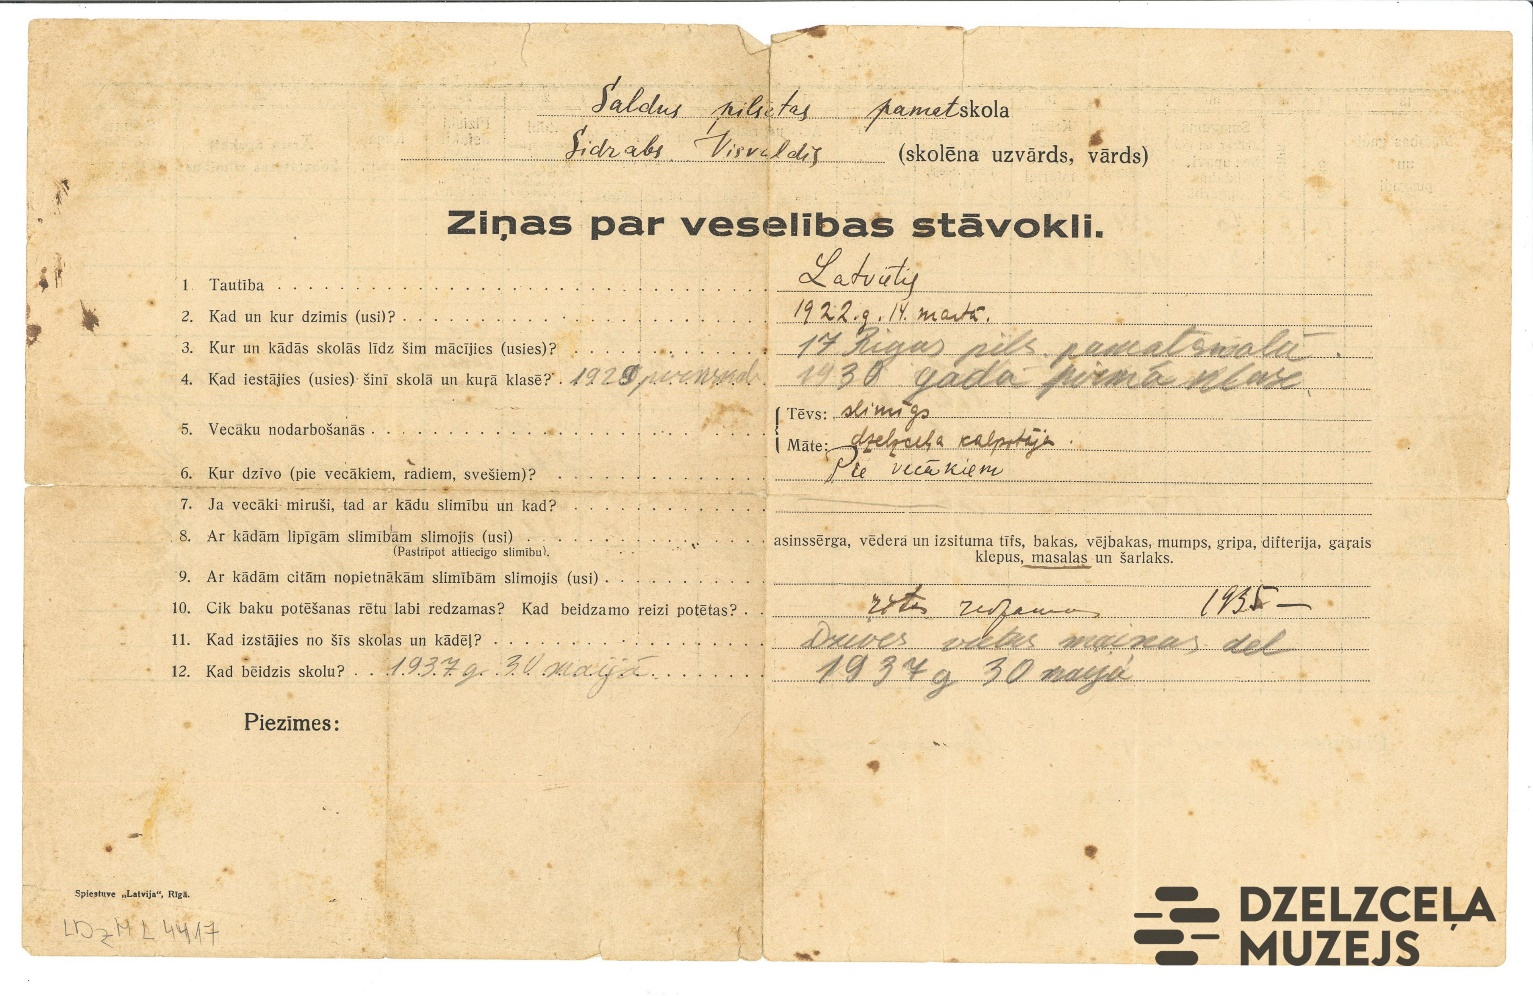 Saldus pilsetas pamatskola
Sidrabs Visvaldis (skolēna uzvārds, vārds)
Ziņas par veselības stāvokli.
1 Tautība Latvietis
2. Kad un kur dzimis (usi)? 1922. g. 14. martā.
3. Kur un kādās skolās līdz šim mācījies (usies)? 17 Rigas pils. pamatskolā.
4. Kad iestājies (usies) šinī skolā un kuŗā klasē? 1929 1930 gadā pirmā klase
5. Vecāku nodarbošanās
Tēvs: slimīgs
Māte: dzelzceļa kalpotāja.
6. Kur dzīvo (pie vecākiem, radiem, svešiem)? Pie vecākiem
7. Ja vecāki miruši, tad ar kādu slimību un kad?
8. Ar kādām lipīgām slimībām slimojis (usi)
(Pastrīpot attiecīgo slimību).
asinssērga, vēdera un izsituma tīfs, bakas, vējbakas, mumps, gripa, difterija, gaŗais
klepus, masalas un šarlaks.
9. Ar kādām citām nopietnākām slimībām slimojis (usi)
10. Cik baku potēšanas rētu labi redzamas? Kad beidzamo reizi potētas? rētas redzamas 1935 —
11. Kad izstājies no šīs skolas un kādēļ? Dzives vietas maiņas dēl
12. Kad beidzis skolu? 1937. g. 30. maijā 1937 g 30 maijā
Piezīmes:
Spiestuve „Latvija“, Rīgā.
LDzM L 4417
DZELZCEĻA
MUZEJS